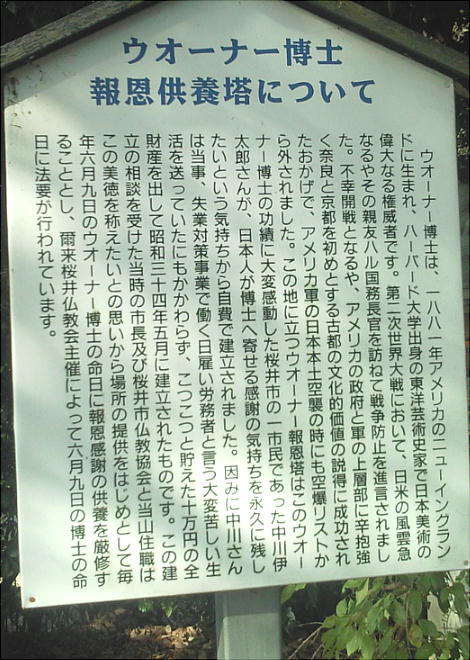 ウオーナー博士
報恩供養塔について
ウオーナー博士は、一八八一年アメリカのニューイングラン
ドに生まれ、ハーバード大学出身の東洋芸術史家で日本美術の
偉大なる権威者です。第二次世界大戦において、日米の風雲急
なるやその親友ハル国務長官を訪ねて戦争防止を進言されまし
た。不幸開戦となるや、アメリカの政府と軍の上層部に辛抱強
く奈良と京都を初めとする古都の文化的価値の説得に成功され
たおかげで、アメリカ軍の日本本土空襲の時にも空爆リストか
ら外されました。この地に立つウオーナー報恩塔はこのウオー
ナー博士の功績に大変感動した桜井市の一市民であった中川伊
太郎さんが、日本人が博士へ寄せる感謝の気持ちを永久に残し
たいという気持ちから自費で建立されました。因みに中川さん
は当事、失業対策事業で働く日雇い労務者と言う大変苦しい生
活を送っていたにもかかわらず、こつこつと貯えた十万円の全
財産を出して昭和三十四年五月に建立されたものです。この建
立の相談を受けた当時の市長及び桜井市仏教協会と当山住職は
この美徳を称えたいとの思いから場所の提供をはじめとして毎
年六月九日のウオーナー博士の命日に報恩感謝の供養を厳修す
ることとし、爾来桜井仏教会主催によって六月九日の博士の命
日に法要が行われています。